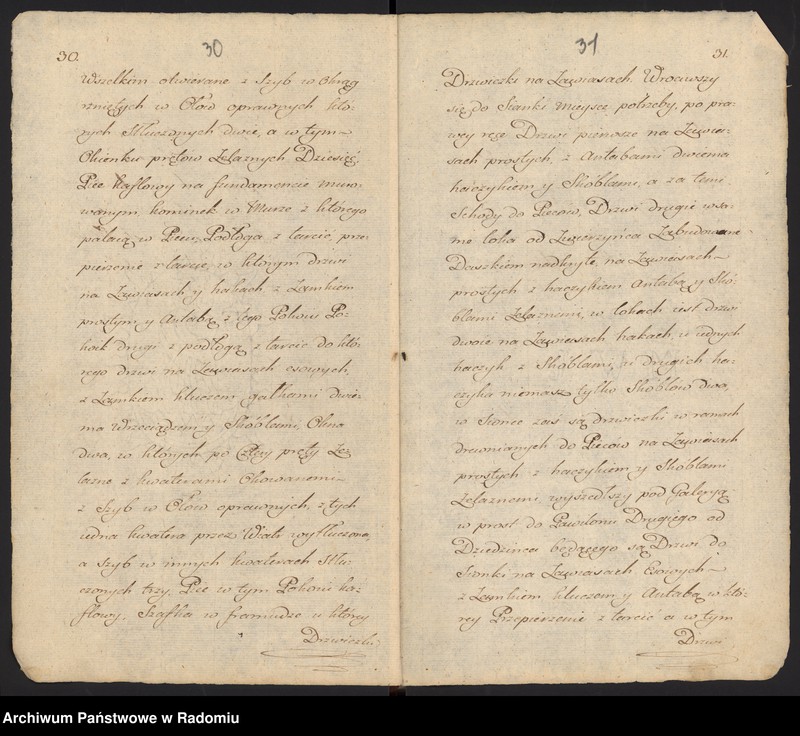 30.
30
Wszelkim otwierane z Szyb w Okrąg
rzniętych w Ołow oprawnych któ-
rych Stłuczonych dwie, a w tym
Okienku prętow Żelaznych Dziesięć.
Piec Kaflowy na fundamencie muro-
wanym, kominek w Murze z którego
palą w Piecu, Podłoga z tarcic, prze-
pierzenie z tarcic, w którym drzwi
na Zawiasach y hakach z Zamkiem
prostym y Antabą, z tego Pokoiu Po-
koik drugi z podłogą z tarcic do któ-
rego drzwi na Zawiasach esowych,
z Zamkiem kluczem gałkami dwie-
ma Wrzeciądzem y Skoblami, Okna
dwa, w których po pręty Że-
lazne z kwaterami Okowanemi
z Szyb w Ołow oprawnych, z tych
iedna kwatera przez Wiatr wytłuczona,
a Szyb w innych kwaterach Stłu-
czonych trzy. Piec w tym Pokoiu ka-
flowy. Szafka w framudze u który
Drzwiczki
31
31.
Drzwiczki na Zawiasach. Wrociwszy
się do Sianki mieysc potrzeby, po pra-
wey ręce Drzwi pierwsze na Zawia-
sach prostych, z Antabami dwiema
haczykiem y Skoblami, a za temi
Schody do Piecow, Drzwi drugie w sa-
me loka od Zwierzyńca Zabudowane
Daszkiem nadkryte, na Zawiasach
prostych z haczykiem Antabą y Sko-
blami Żelaznemi, w lokach iest drzwi
dwoie na Zawiasach hakach, u iednych
haczyk z Skoblami, u drugich ha-
czyka niemasz tylko Skoblow dwa,
w Sionce zaś są drzwiczki w ramach
drewnianych do Piecow na Zawiasach
prostych z haczykiem y Skoblami
Żelaznemi, wyszedłszy pod Galeryą
w prost do Pawilonu Drugiego od
Dziedzińca będącego są Drzwi do
Sionki na Zawiasach Esowych
z Zamkiem kluczem y Antabą w któ-
rey Przepierzenie z tarcic a w tym
Drzwi
Archiwum Państwowe w Radomiu